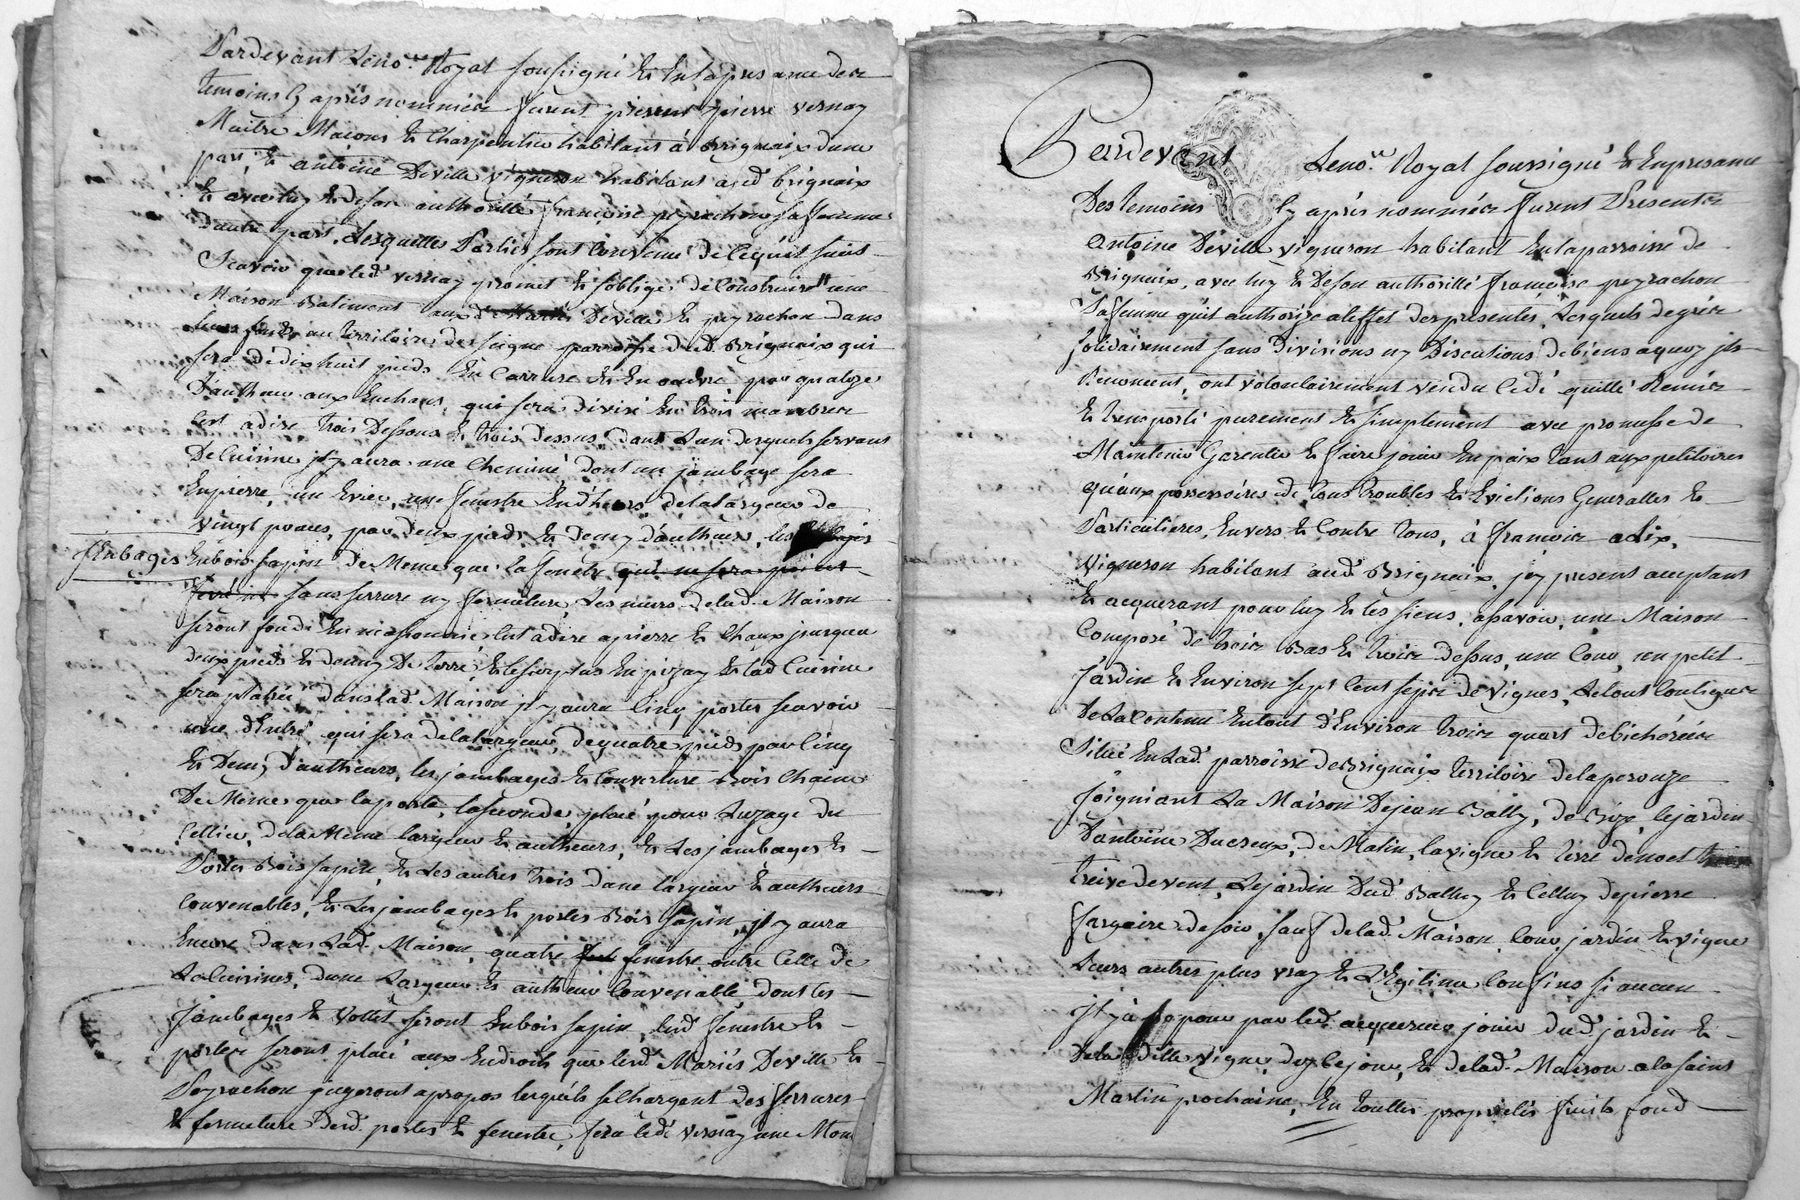 Pardevant Leno.re Royal soussigné Et En la presance des
temoins Cy après nommées furent présent pierre vernay
Maitre Maçons Et Charpentier habitant à Brignaix dune
part, Et antoine Deville vigneron habitant aud brignaix
Et avec luy Et de son authorillé françoise peyrachon sa femme
Dautre part, Lesquelles Parties sont Convenue de Cequit suit
Scavoir que led vernay promet Et soblige de Construire une
Maison Batiment auxd Mariés Deville Et peyrachon dans
leurs fonds au territoire de parroisse dud Brignaix qui
sera de dix huit pieds En Carrure Et En oeuvre, par quatorze
D'auteur aux Enchans, qui sera divisé En trois membres
Cest adire trois Dessous Et trois dessus, dans Lun desquels servant
De Cuisine jl y aura une Cheminé dont un jambage sera
En pierre, un Evier, une fenestre dela largeur de
vingt pouces, par deux pieds Et demy d'autheur, les
jambages En bois sapin De Meme que la fenetre qui ne sera point
ferré ny sans serrure ny fermeture, Les murs delad. Maison
seront fondé En massonnerie Cest adire apierre Et Chaux jusques
deux pieds Et demy De terre, Et le surplus En pizay Et lad Cuisine
sera platrée dans lad. Maison jl y aura Cinq portes scavoir
une d'Entré qui sera dela largeur de quatre pieds par Cinq
Et Demy D'autheurs, les jambages Et Couverture Bois Chaine
De Meme que la porte, la seconde, placé pour Luzage du
Cellier, dela Meme largeur Et autheurs, Et Les jambages Et
Portes Bois sapin, Et Les autres trois dune largeur Et autheurs
Convenables, Et Les jambages Et portes Bois sapin, jl y aura
Encore dans Lad. Maison, quatre fenestre outre Celle de
La Cuisines, dune Largeur Et autheur Convenable dont les
Jambages Et Vollet seront En bois sapin, lesd fenestre Et
portes seront placé aux Endroits que lesd. Mariés Deville Et
Peyrachon jugeront apropos lesquels se Chargent des serrures
Et fermeture desd. portes Et fenestre, sera ledt vernay une Mon
Pardevant Leno.re Royal soussigné Et En presance
Des temoins Cy après nommées furent Presentes
Antoine Deville vigneron habitant En la parroisse de
Brignaix, avec luy Et De son authorillé françoise peyrachon
Sa femme qu'il authorize aleffet des présentes, Lesquels de grées
solidairement sans Divisions ny Discutions de biens a quoy jls
Renoncent, ont volontairement vendu Cedé quitté Remis
Et transporté purement Et simplement avec promesse de
Maintenir Garentir Et faire jouir En paix tant aux petitoires
qu'aux possessoires de tous troubles Et Evictions Generalles Et
Particulieres, Envers Et Contre tous, à françois adix,
Vigneron habitant aud Brignaix, jcy present acceptant
Et acquerant pour luy Et les siens, asavoir, une Maison
Composé de trois Bas Et trois dessus, une Cour, un petit
Jardin Et Environ sept Cent sepes de vignes, Le tout Contigue
De La Contenue En tout d'Environ trois quart de bicherée
Situé En Lad. parroisse de Brignaix territoire de laperouze
Joigniant La Maison De jean Bally, de Bize, le jardin
D'antoine Ducreux, de Matin, la vigne Et terre de noel
treive de vent, Le jardin Dud Bally Et Celluy de pierre
fargaire de soir, sauf delad. Maison, Cour, jardin Et vigne
Leurs autres plus vray Et Legitime Confins si aucun
jl y à, pour par led. acquereur jouir dud jardin Et
Dela ditte vigne, dez Ce jour, Et delad. Maison a la saint
Martin prochaine, En toutte proprietés fruits fond